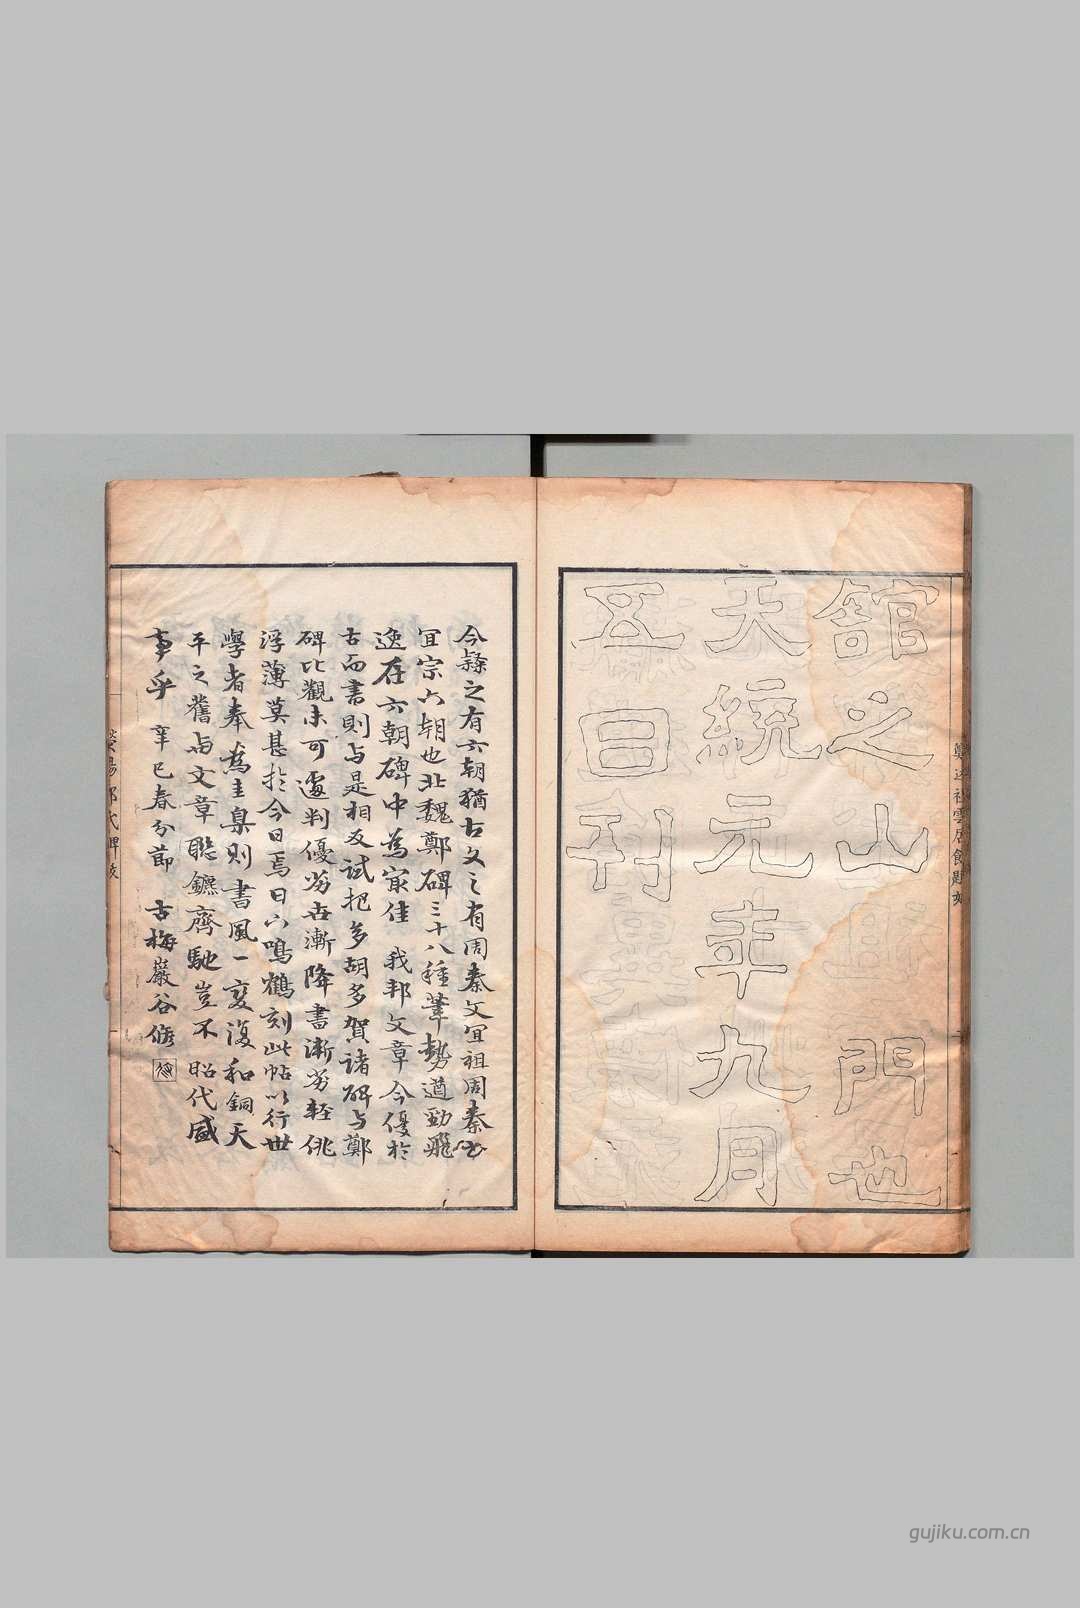 鄭述祖雲居館題刻
館之山門也
天統元年九月
五日刊
今隸之有六朝猶古文之有周秦文宜祖周秦書
宜宗六朝也北魏鄭碑三十八種筆勢遒勁飛
逸在六朝碑中為㝡佳 我邦文章今優於
古而書則与是相反試把多胡多賀諸碑与鄭
碑比觀未可遽判優劣世漸降書漸劣輕佻
浮薄莫甚於今日焉日下鳴鶴刻此帖以行世
學者奉為圭臬則書風一變復和銅天
平之舊与文章聮鑣齊馳豈不昭代盛
事乎 辛巳春分節 古梅巖谷修
滎陽鄭氏碑跋
gujiku.com.cn